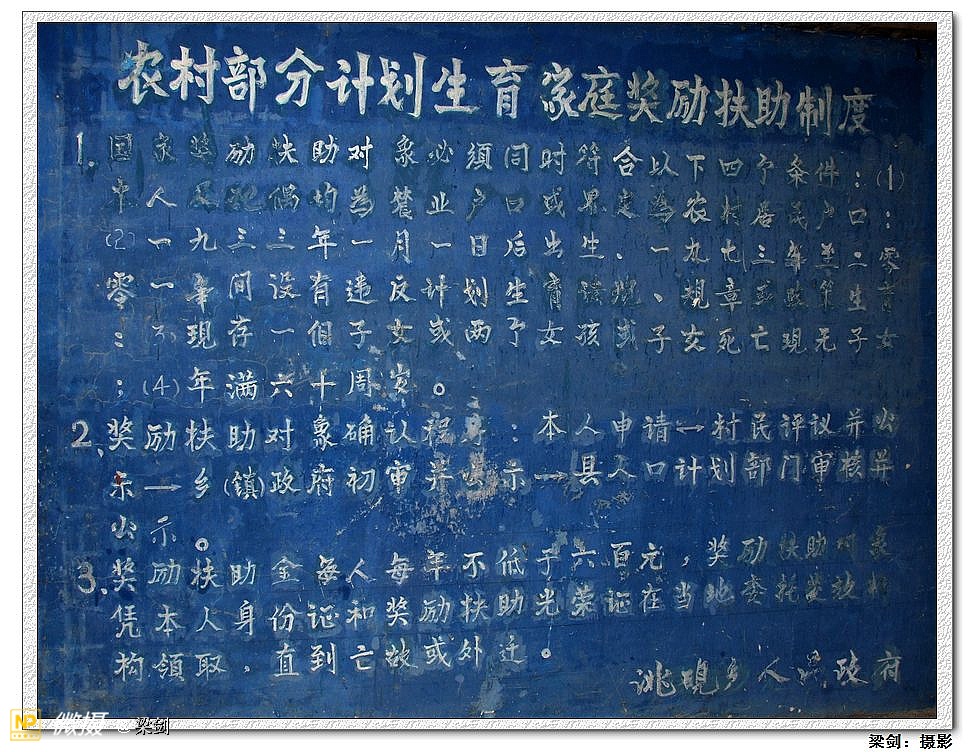 农村部分计划生育家庭奖励扶助制度
1、国家奖励扶助对象必须同时符合以下四个条件：(1)
本人及配偶均为農业户口或界定为农村居民户口：
(2)一九三三年一月一日后出生、一九七三年至二零
零一年间没有违反计划生育法规、规章或政策生育
：(3)现存一個子女或两个女孩或子女死亡现无子女
；(4)年满六十周岁。
2、奖励扶助对象确认程序：本人申请→村民评议并公
示→乡(镇)政府初审并公示→县人口计划部门审核并
公示。
3、奖励扶助金每人每年不低于六百元，奖励扶助对象
凭本人身份证和奖励扶助光荣证在当地委托发放机
构領取，直到亡故或外迁。
乡人民政府
微摄 @梁剑
梁剑：摄影